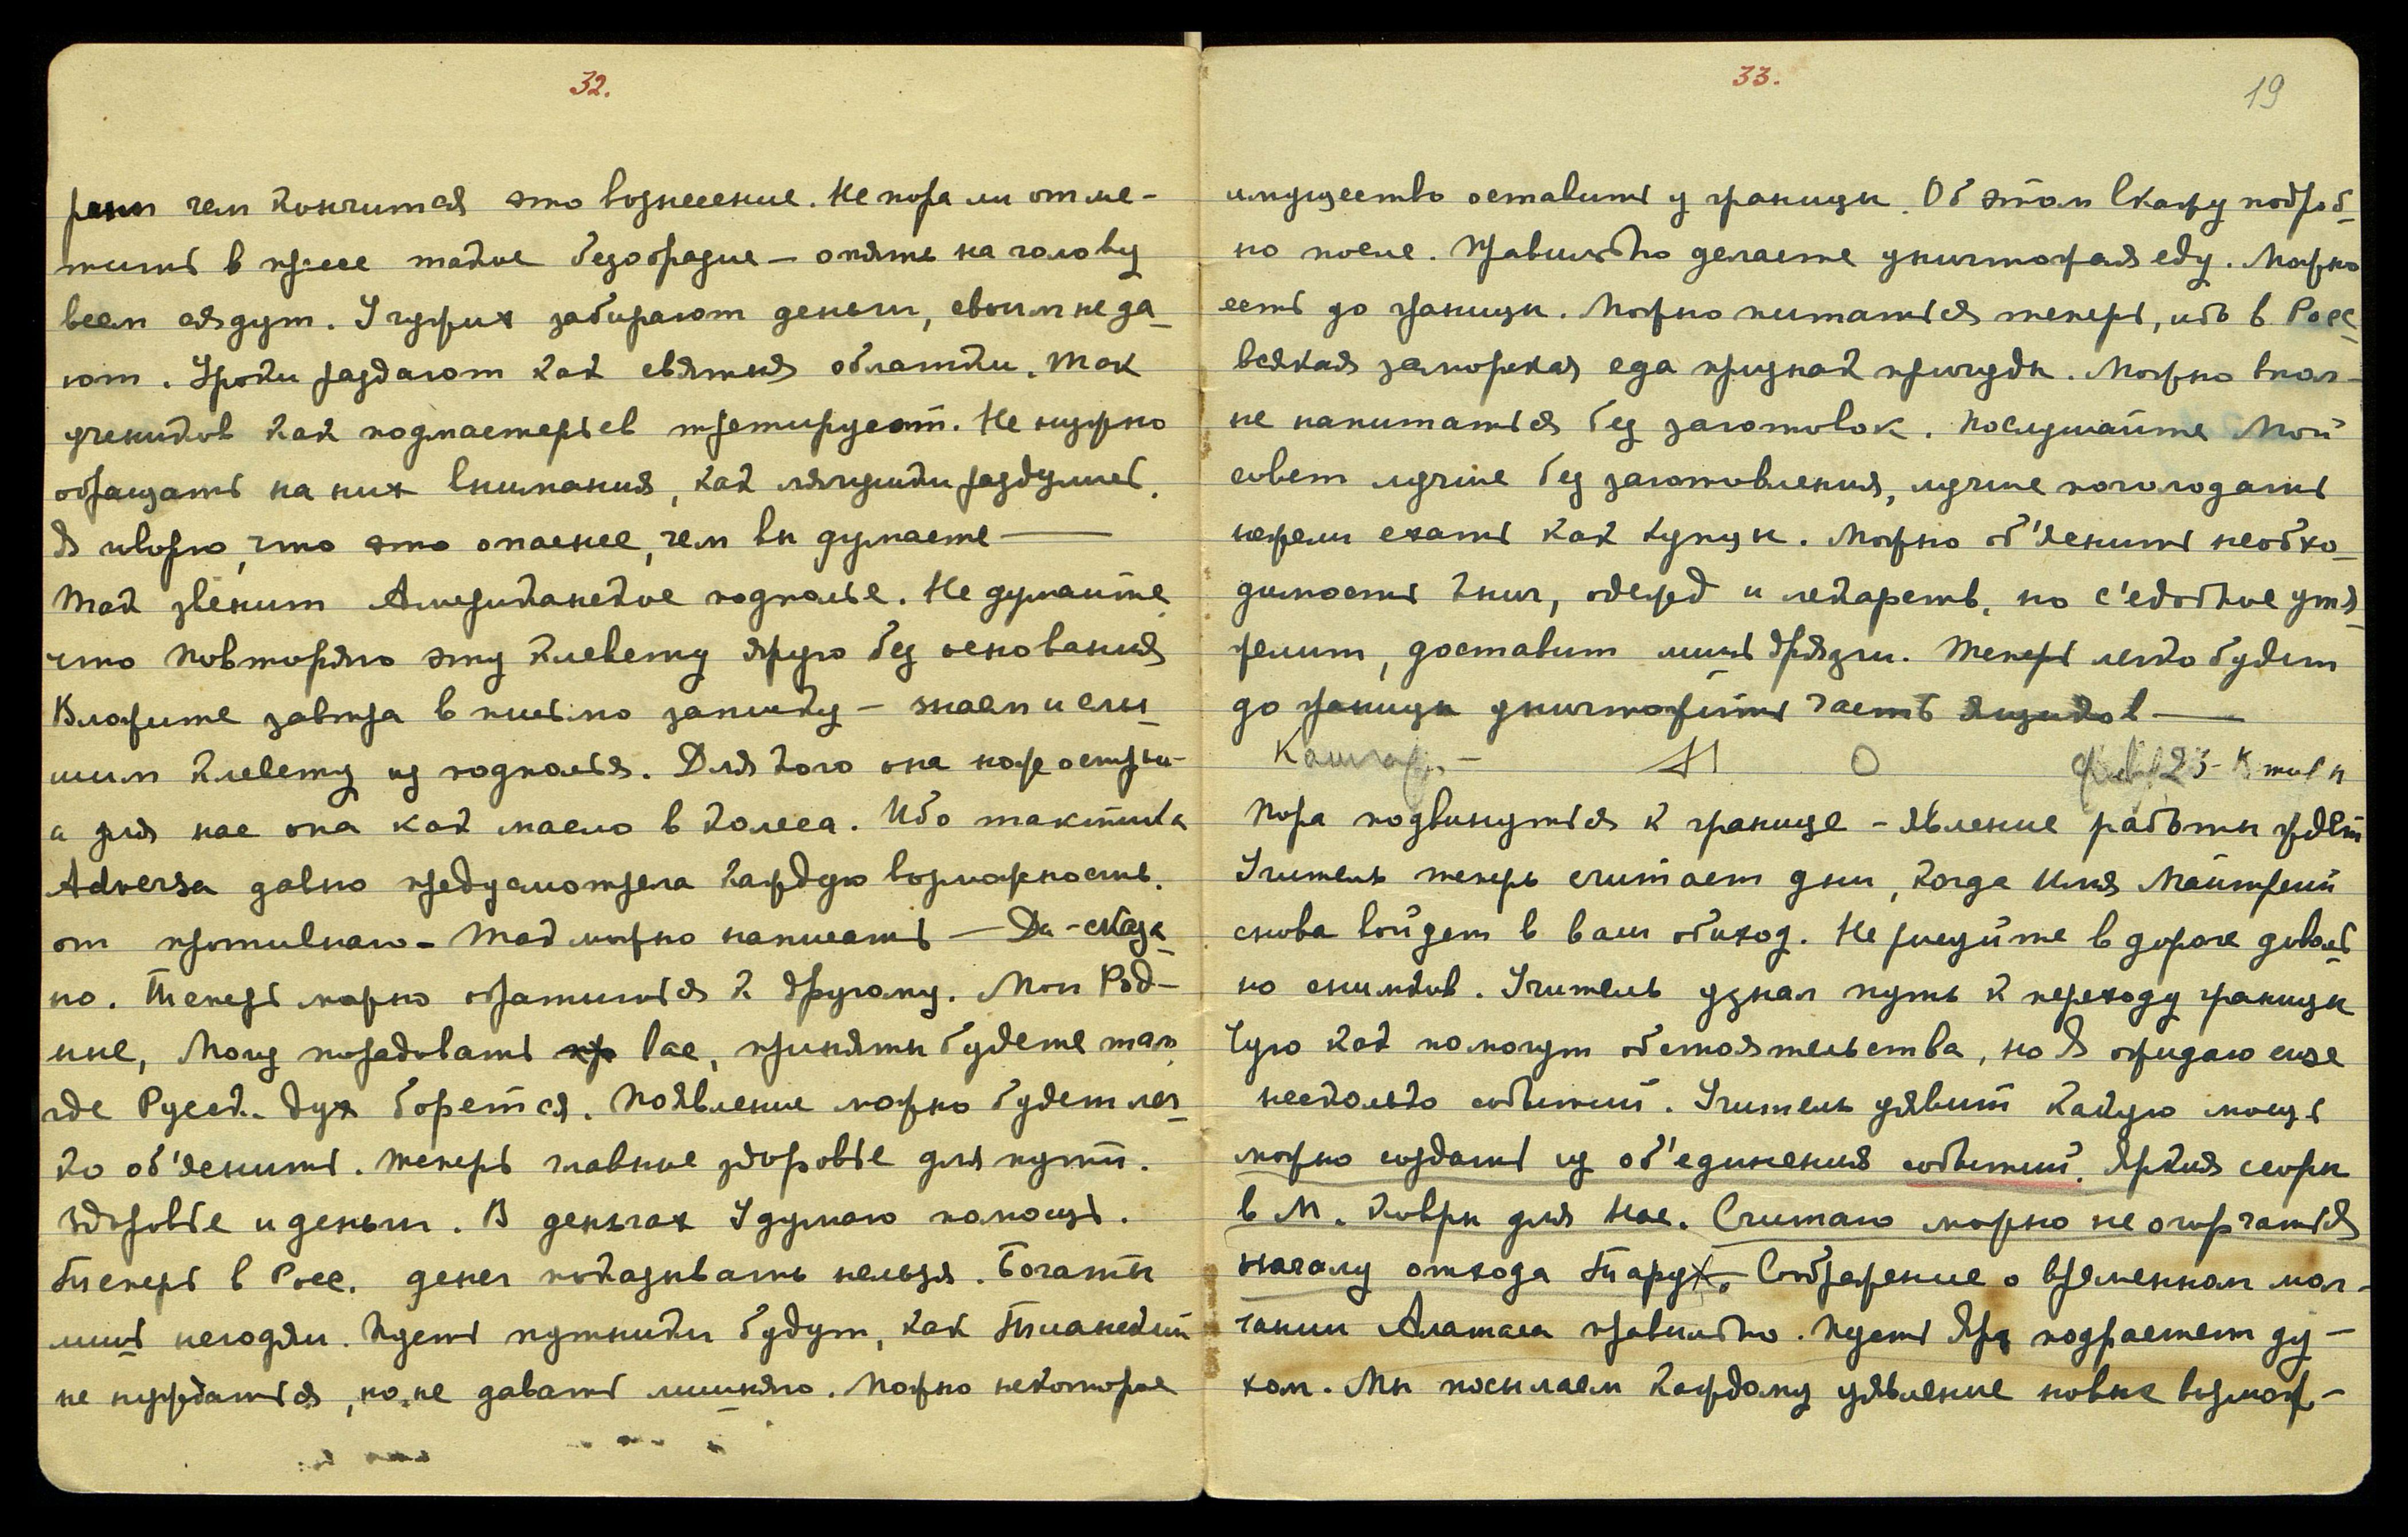 32.
чем кончится это вознесение. Не пора ли отме-
тить в прессе такое безобразие — опять на голову
всем сядут. У чужих забирают деньги, своим не да-
ют. Уроки раздают как святыя облатки. Так
учеников как подмастерьев третируют. Не нужно
обращать на них внимания, как лягушки раздулись.
Я говорю, что это опаснее, чем вы думаете —
Так звенит Американское подполье. Не думайте,
что повторяю эту клевету ярую без основания
Вложите завтра в письмо записку — знаем и слы-
шим клевету из подполья. Для кого она нож острый
а для нас она как масло в колеса. Ибо тактика
Adversa давно предусмотрела каждую возможность.
от противнаго - Так можно написать — Да - сказа-
но. Теперь можно обратиться к другому. Мои Род-
ные, Могу порадовать вас, приняты будете там,
где Русск. дух борется. Появление можно будет лег-
ко об'яснить. Теперь главное здоровье для пути.
Здоровье и деньги. В деньгах Я думаю помощь.
Теперь в Росс. денег показывать нельзя. Богаты
лишь негодяи. Пусть путники будут, как Тианский
не нуждаться, но не давать лишняго. Можно некоторое
33.
19
имущество оставить у границы. Об этом скажу подроб-
но после. Правильно делаете уничтожая еду. Можно
есть до границы. Можно питаться теперь, ибо в Росс.
всякая заморская еда признак причуды. Можно впол-
не напитаться без заготовок. Послушайте Мой
совет лучше без заготовления, лучше поголодать
нежели ехать как купцы. Можно об'яснить необхо-
димость книг, одежд и лекарств, но с'едобное утя-
желит, доставит лишь дрязги. Теперь легко будет
до границы уничтожить часть ящиков —
Кашгар. - О Февр. 23 - К
Пора подвинуться к границе - явление работы ждет
Учитель теперь считает дни, когда Имя Майтрейи
снова войдет в ваш обиход. Не рисуйте в дороге доволь-
но снимков. Учитель узнал путь к переходу границы
Чую как помогут обстоятельства, но Я ожидаю еще
несколько событий. Учитель уявит какую мощь
можно создать из об'единения событий. Яркия ссоры
в М. ковры для Нас. Считаю можно не огорчаться
началу отхода Тарух. Соображение о временном мол-
чании Аватара правильно. Пусть Яр. подрастет ду-
хом. Мы посылаем каждому уявление новых возмож-